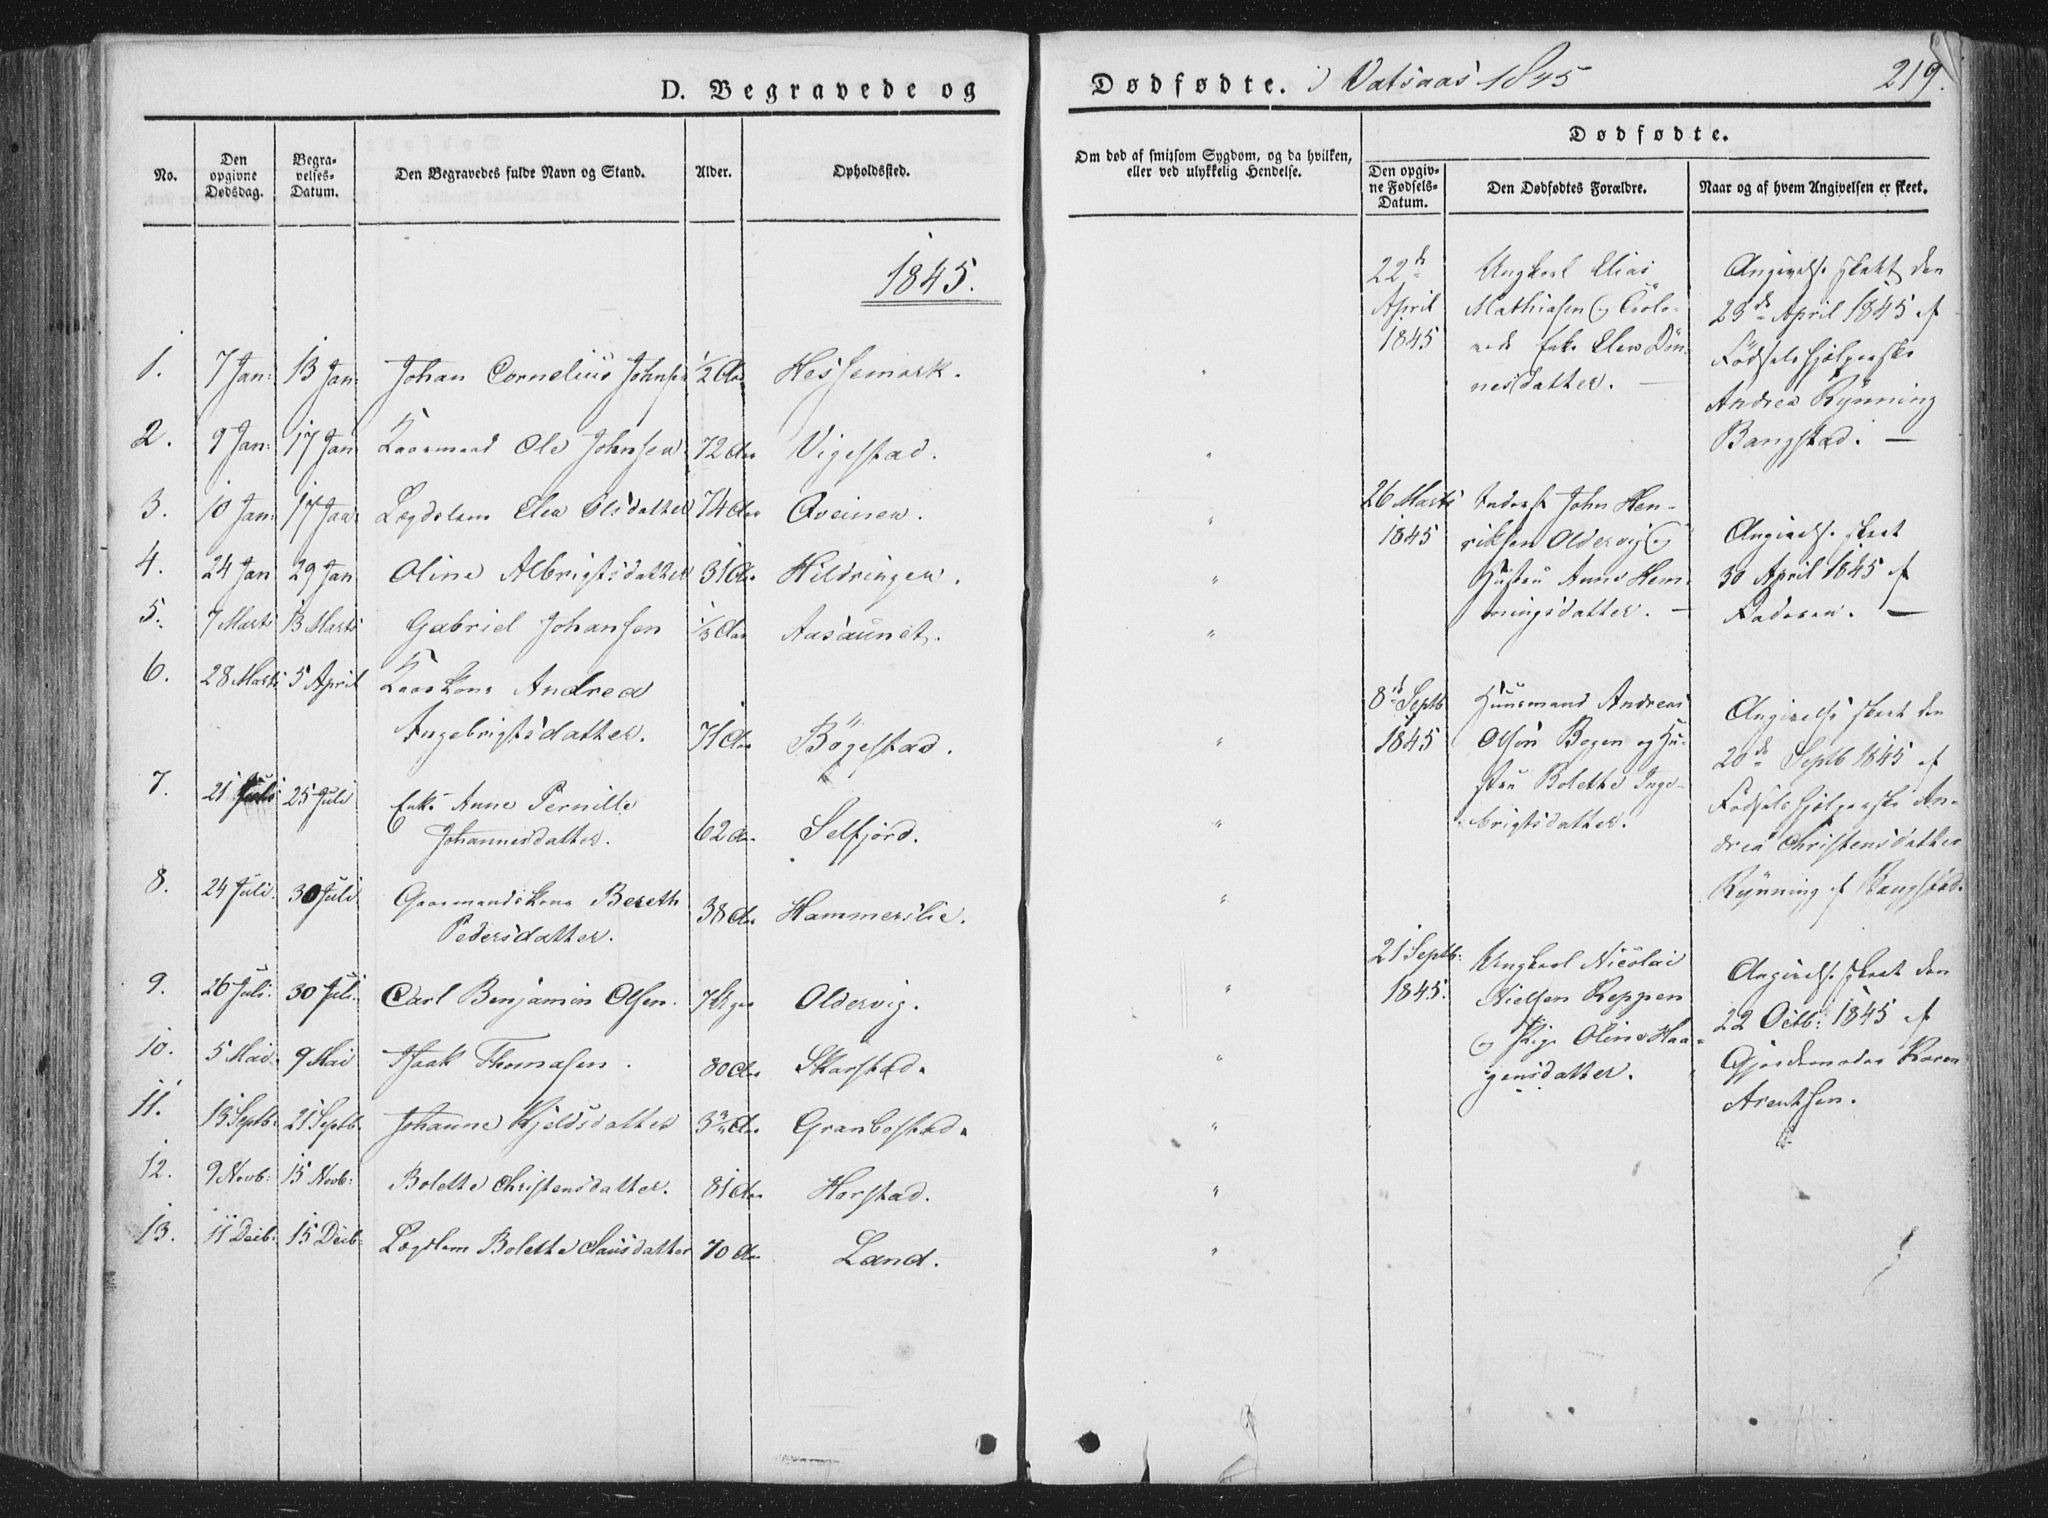 D. Begravede og
No.
Den opgivne Dødsdag.
Begravelses-Datum.
Den Begravedes fulde Navn og Stand.
Alder.
Opholdssted.
1845.
1. 7 Jan: 13 Jan: Johan Cornelius Johnsen 1/2 Aar Hessemark.
2. 9 Jan: 17 Jan Kaarmand Ole Johnsen 72 Aar Vigestad.
3. 10 Jan: 17 Jan: Lægdslem Elen Olsdatter 74 Aar Aveinen.
4. 24 Jan 29 Jan Oline Albrigtsdatter 31 Aar Hildringen.
5. 7 Marts 13 Marts Gabriel Johansen 1/3 Aar Aasaunet.
6. 28 Marts 5 April Kaarkone Andrea
Ingebrigtsdatter. 71 Aar Bögestad.
7. 21 Juli 25 Juli Enke Anne Pernille
Johannesdatter. 62 Aar Selfjord.
8. 24 Juli 30 Juli Gaarmandskone Bereth
Pedersdatter. 38 Aar Hammerslie.
9. 26 Juli. 30 Juli. Carl Benjamin Olsen. Oldervig.
10. 5 Mai. 9 Mai Isaak Thomasen. 80 Aar Skarstad.
11. 13 Septb: 21 Septb. Johanne Kjeldsdatter Aar Granbostad.
12. 9 Novb: 15 Novb: Bolette Christensdatter. 81 Aar Horstad.
13. 11 Decb: 15 Decb: Lægdslem Bolette Clausdatter 70 Aar Land.
Dødfødte. i Vatsaas 1845
219.
Om død af smitsom Sygdom, og da hvilken,
eller ved ulykkelig Hendelse.
Dødfødte.
Den opgivne Fødsels-Datum.
Den Dødfødtes Forældre.
Naar og af hvem Angivelsen er skeet.
22de
April
1845
Ungkarl Elias
Mathiasen og
Enke Elen Dön-
nesdatter. —
Angivelse skeet den
23de April 1845 af
Födselshjelperske
Andrea Rÿnning
Bangstad. —
26 Marts
1845
Inderst John Hen-
riksen Oldervig og
Hustru Anne Hem-
mingsdatter. —
Angivelse skeet
30 April 1845 af
Faderen. —
8de Septb
1845
Huusmand Andreas
Olsön Bogen og Hu-
stru Bolethe Inge-
brigtsdatter.
Angivelse skeet den
20de Septb 1845 af
Födselshjelperske An-
drea Christensdatter
Rÿnning af Bangstad.
21 Septb:
1845.
Ungkarl Nicolai
Nielsen Reppen
og Pige Oline Haa-
gensdatter.
Angivelse skeet den
22 Octb: 1845 af
Gjordemoder Karen
Arentsen.